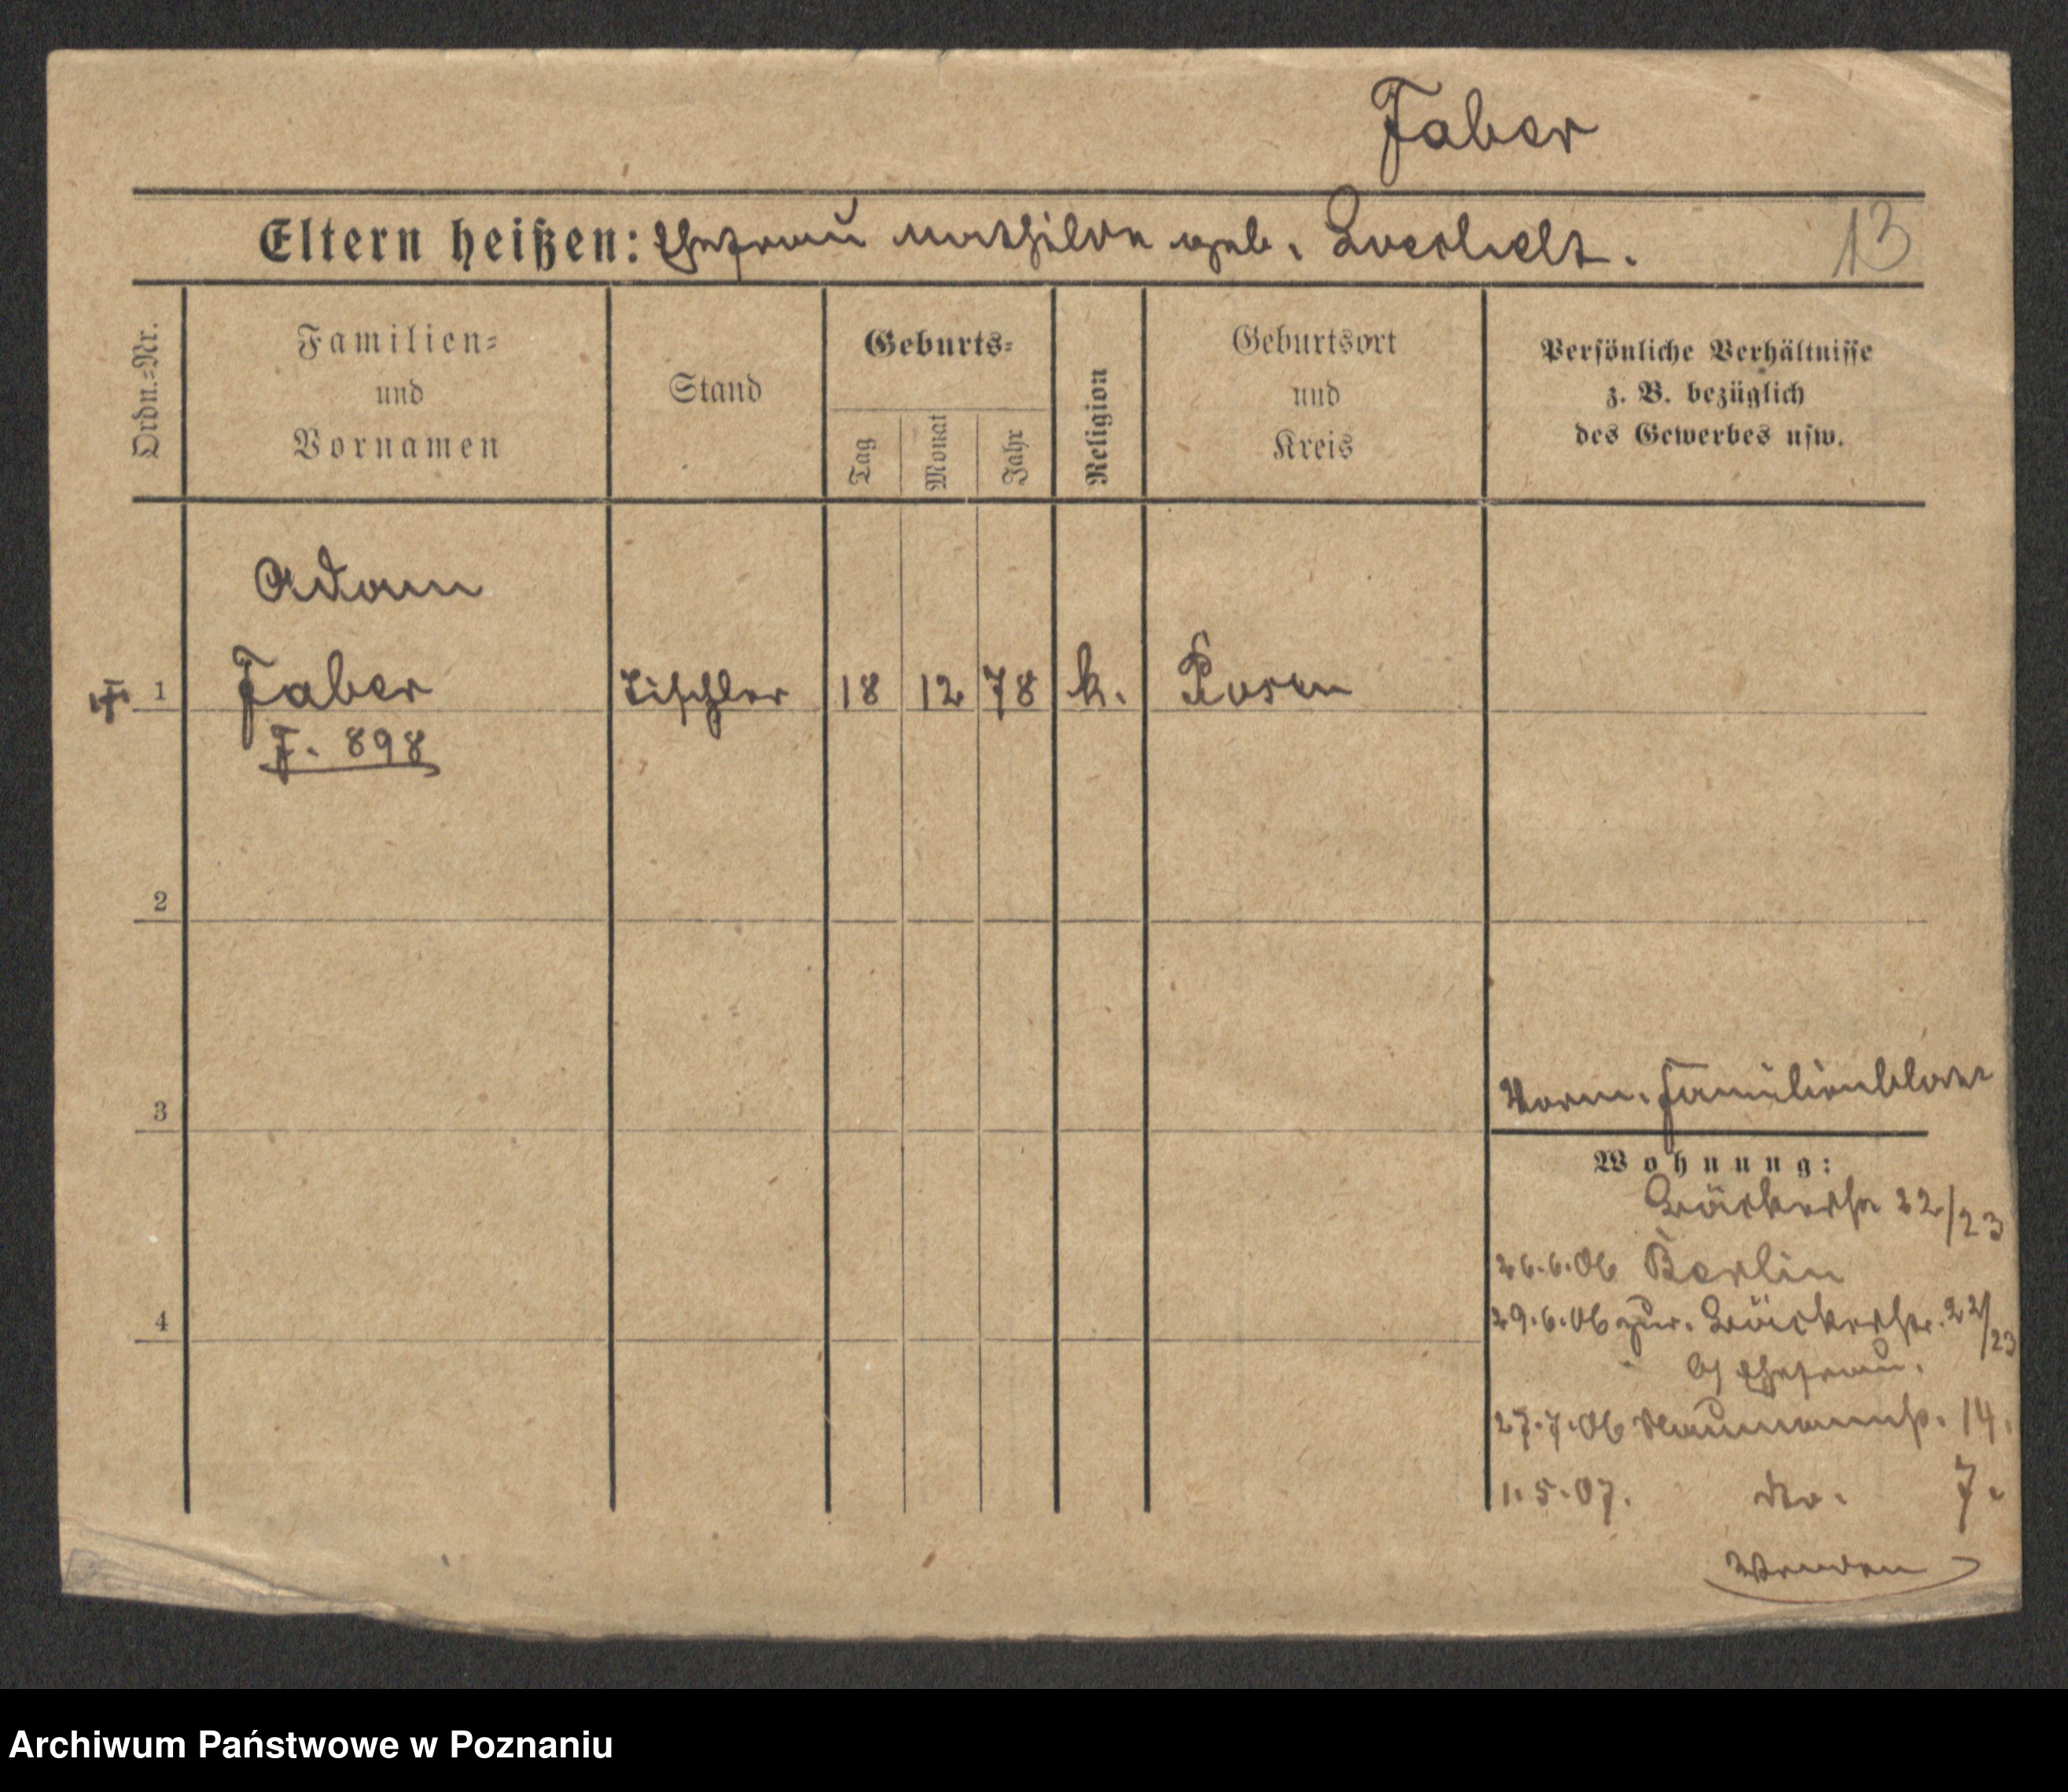 Faber
Eltern heißen: Ehefrau Mathilde geb.
13
Ordn.=Nr.
Familien=
und
Vornamen
Stand
Geburts=
Tag
Monat
Jahr
Religion
Geburtsort
und
Kreis
Persönliche Verhältnisse
z. B. bezüglich
des Gewerbes usw.
Adam
1 Faber Tischler 18 12 78 k. Posen
F. 898
2
3
Vorm. Familienblatt
Wohnung:
Bäckerstr 22/23
26.6.06 Berlin
4
29.6.06 zur. Bäckerstr. 22/23
Ehefrau.
27.7.06 Naumannstr. 14.
1.5.07. do. 7.
Wenden
Archiwum Państwowe w Poznaniu